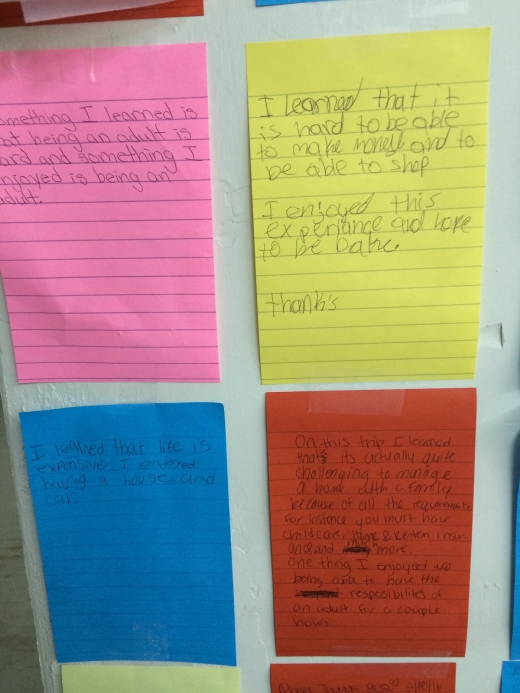 omething I learned is
at being an adult is
ard and something I
njoyed is being an
dult.
I learned that it
is hard to be able
to make money and to
be able to shop
I enjoyed this
experiance and hope
to be back
thanks
I learned that life is
expensive. I enjoyed
having a house and
car.
On this trip I learned
that its actually quite
challenging to manage
a home with a family
because of all the requirments
for instance you must have
childcare, home &
and more.
One thing I enjoyed was
being able to have the
resposibilites of
an adult for a couple
hours